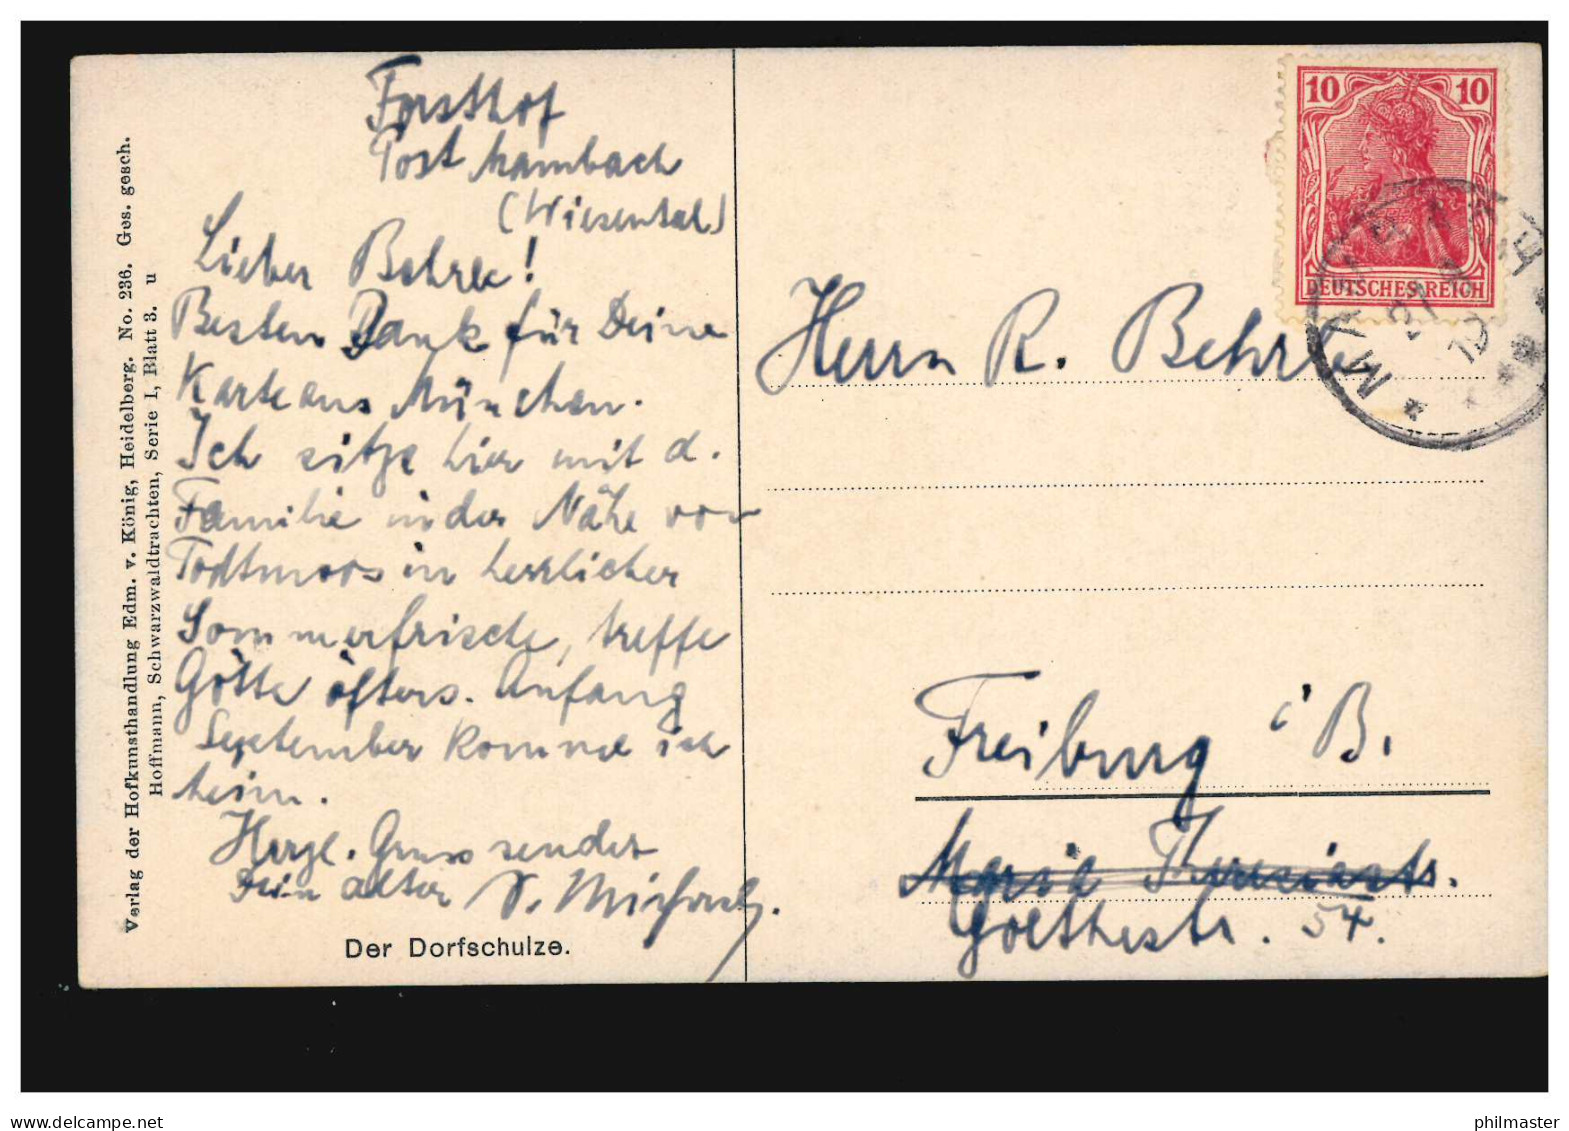 Forsthof
Post Mambach
(Wiesental)
Lieber Behrle!
Besten Dank für Deine
Karte aus München.
Ich sitze hier mit d.
Familie in der Nähe von
Todtmoos in herrlicher
Sommerfrische, treffe
Götte öfters. Anfang
September komme ich
heim.
Herzl. Gruss sendet
Dein alter
Der Dorfschulze.
Verlag der Hofkunsthandlung Edm. v. König, Heidelberg. No. 236. Ges. gesch.
Hoffmann, Schwarzwaldtrachten, Serie I, Blatt 3. u
10 10
DEUTSCHES REICH
MAMBACH
27
Herrn R. Behrle
Freiburg i B.
Maria Theresiastr.
Goethestr. 54.
www.delcampe.net
philmaster